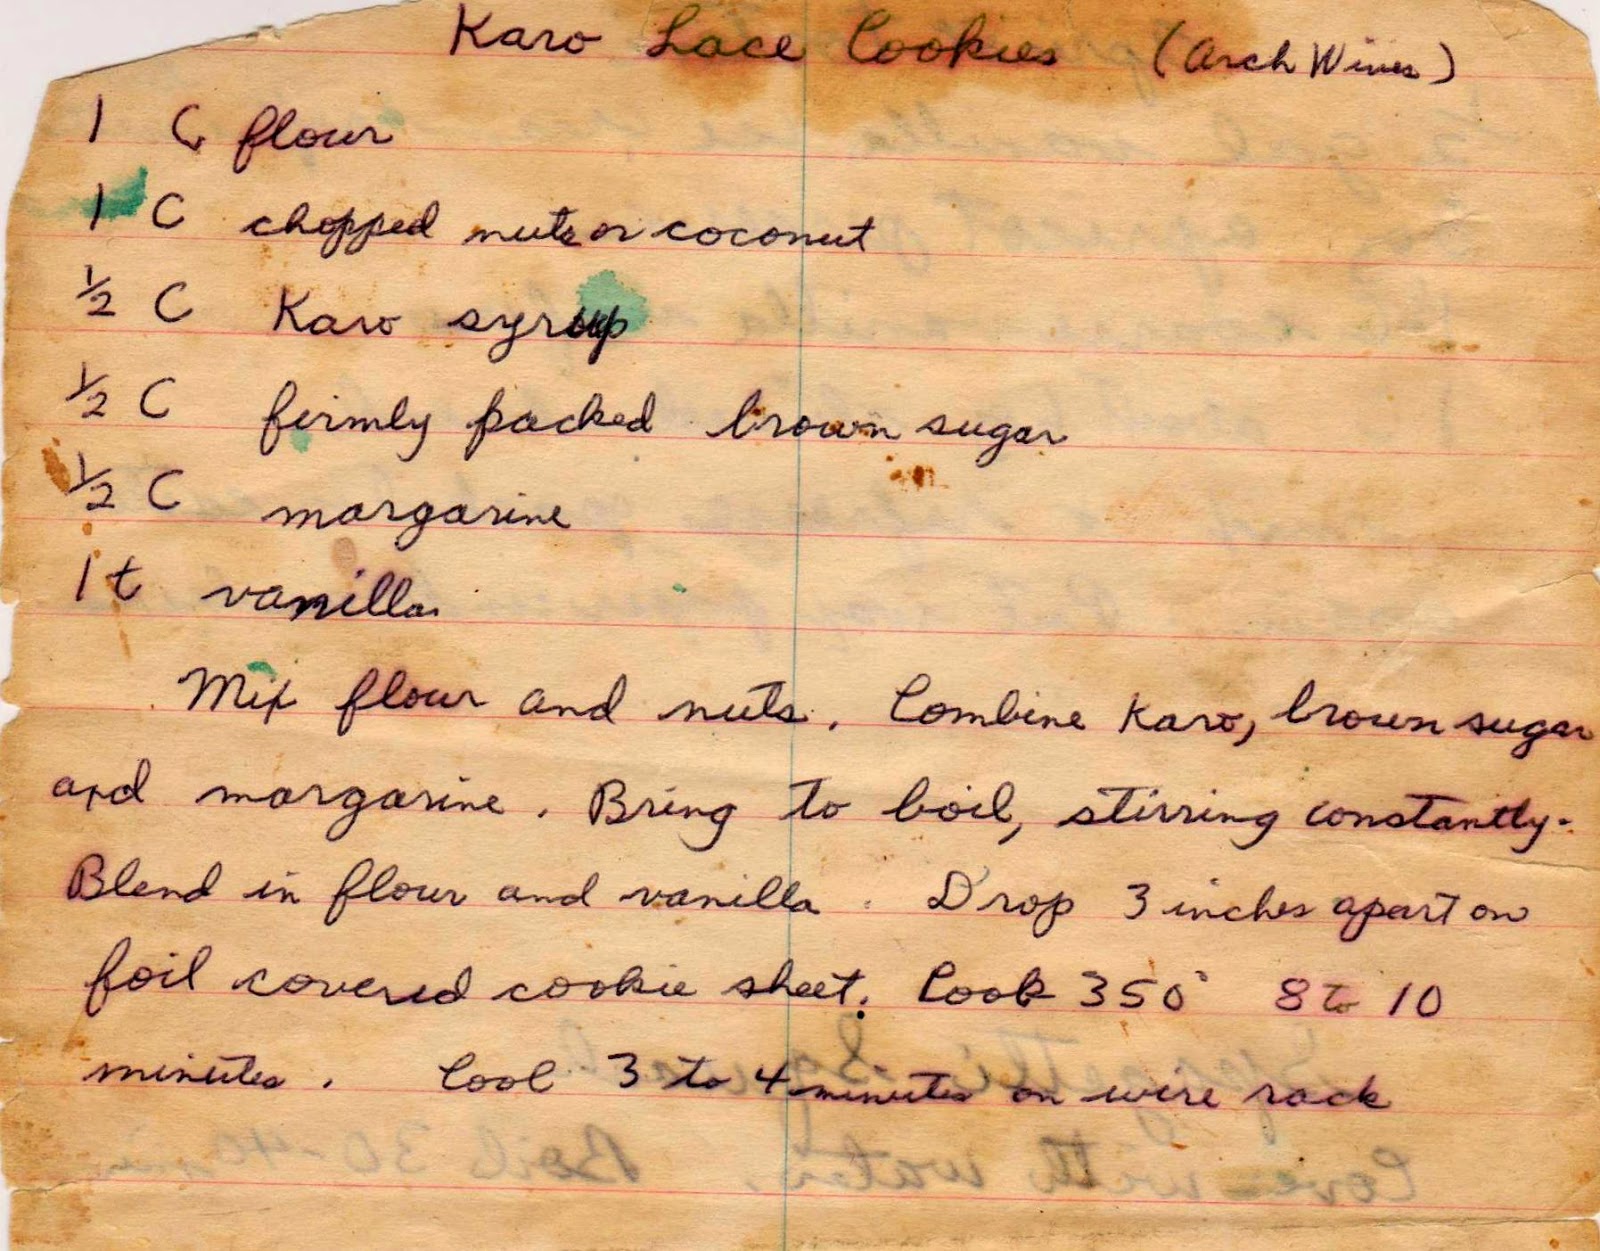 Karo Lace Cookies (Arch Wines)
1 C flour
1 C chopped nuts or coconut
1/2 C Karo syrup
1/2 C firmly packed brown sugar
1/2 C margarine
1 t vanilla
Mix flour and nuts. Combine Karo, brown sugar
and margarine. Bring to boil, stirring constantly.
Blend in flour and vanilla. Drop 3 inches apart on
foil covered cookie sheet. Cook 350° 8 to 10
minutes. Cool 3 to 4 minutes on wire rack
Spagetti Squash
Cover with water. Boil 30-40 min